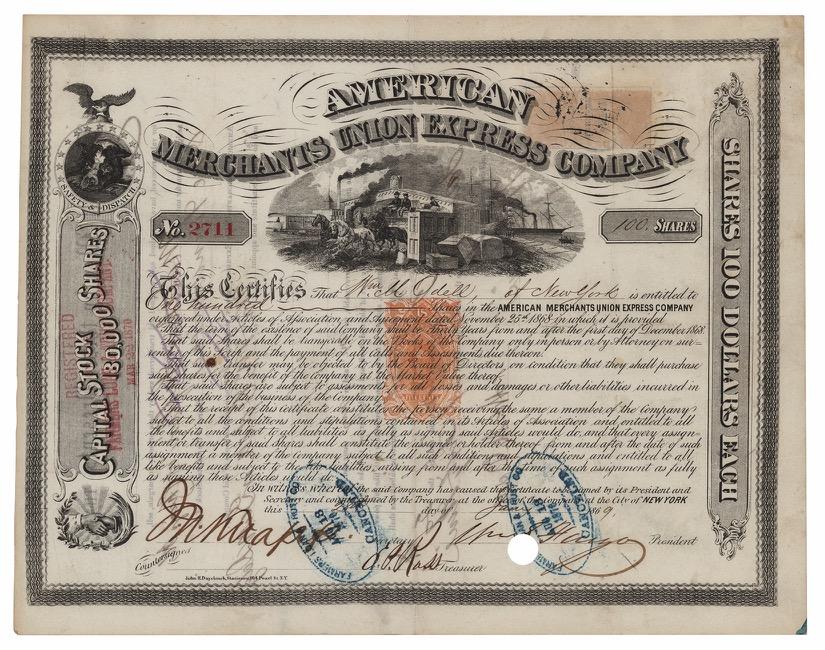 AMERICAN
MERCHANTS UNION EXPRESS COMPANY
SAFETY & DISPATCH
No. 2711
100. SHARES
CAPITAL STOCK 80,000 SHARES
REGISTERED
SHARES 100 DOLLARS EACH
This Certifies That Wm. M. Odell, of New York is entitled to
Shares in the AMERICAN MERCHANTS UNION EXPRESS COMPANY
organized under Articles of Association and Agreement dated November 25th 1868 in which it is provided
That the term of the existence of said Company shall be Thirty Years from and after the first day of December 1868.
That said Shares shall be transferable on the books of the Company only in person or by Attorney on sur-
render of this Scrip and the payment of all calls and assessments due thereon.
That such transfer may be objected to by the Board of Directors, on condition that they shall purchase
said shares for the benefit of the Company at the fixed value thereof.
That said Shares are subject to assessment for the losses and damages or other liabilities incurred in
the prosecution of the business of the Company.
That the receipt of this certificate constitutes the person receiving the same a member of the Company
subject to all the conditions and stipulations contained in its Articles of Association and entitled to all
the benefits and subject to all liabilities as fully as signing said Articles would do, and that every assign-
ment or transfer of said Shares shall constitute the assignee or holder thereof from and after the date of such
assignment a member of the Company subject to all such conditions and stipulations and entitled to all
like benefits and subject to the like liabilities arising from and after the time of such assignment as fully
as signing these Articles would do.
In witness whereof the said Company has caused this certificate to be signed by its President and
Secretary and countersigned by the Treasurer at the office of the Company at the City of NEW YORK
this day of 1869
Secretary
President
Countersigned
Treasurer
CANCELLED
CANCELLED
John R. Duyckink, Stationer, 164 Pearl St. N.Y.